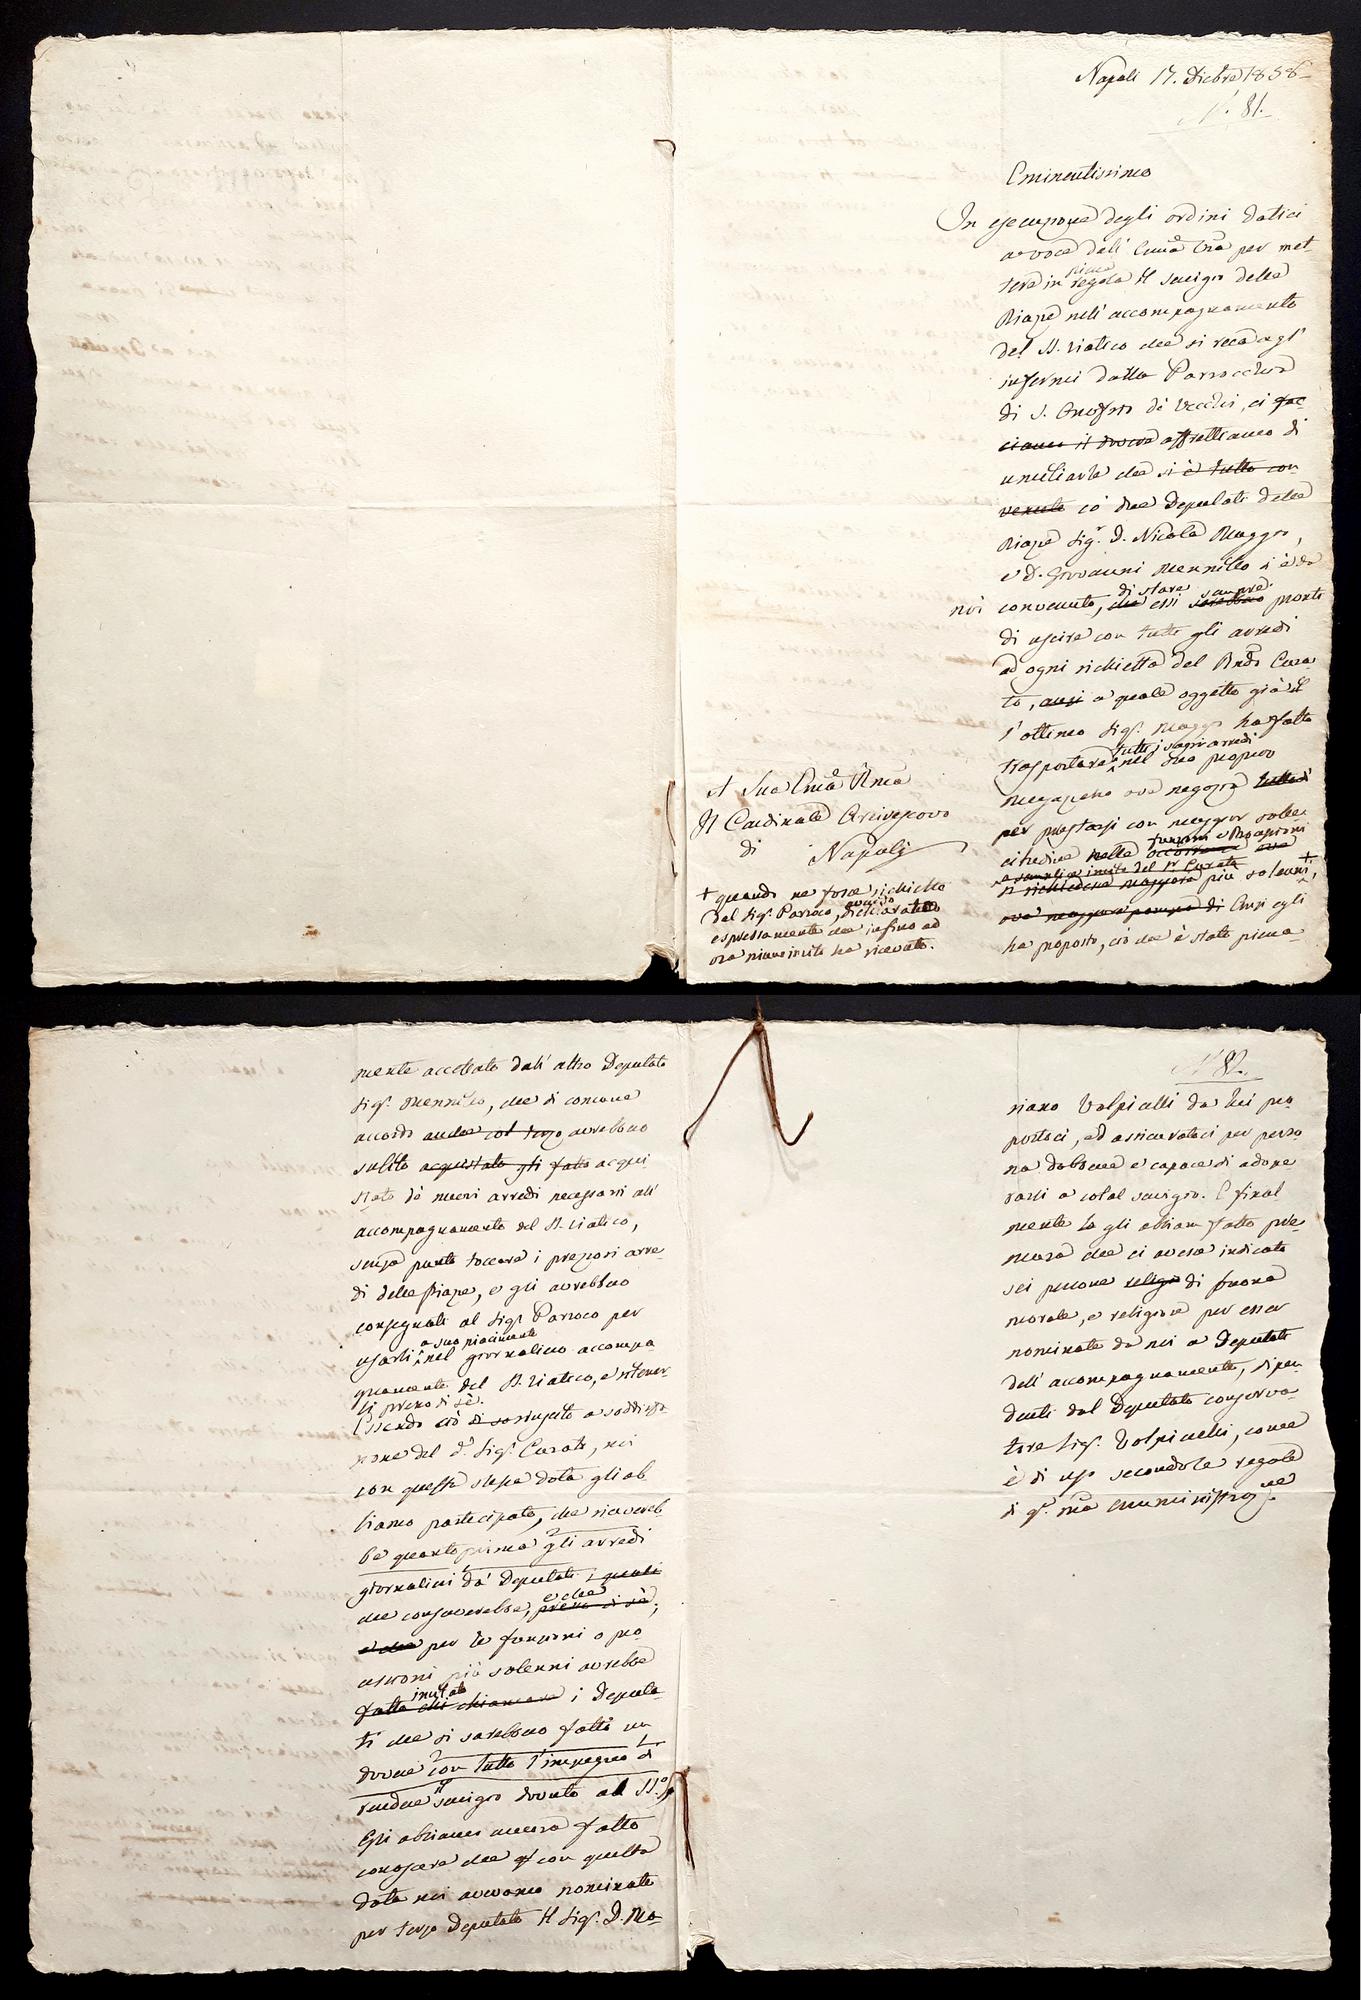 Napoli 17. Dicbre 1838
N. 81.
Eminentissimo
In esecuzione degli ordini datici
a voce dall' Emã Vrã per met-
tere in piena regola il servigio delle
Piazze nell' accompagnamento
del SS. Viatico che si reca agl'
infermi dalla Parrocchia
di S. Onofrio de' Vecchi, ci fac-
ciamo il dovere affrettiamo di
umiliarle che si è tutto con
venuto cò due Deputati delle
Piazze Sigr. D. Nicola Maggio,
e D. Giovanni Mennillo si è da
noi convenuto, che di stare essi sarebbero sempre pronti
di uscire con tutti gli arredi
ad ogni richiesta del Rndo Cura-
to, anzi a quale oggetto già il
l'ottimo Sigr. Maggio ha fatto
trasportare tutti i sagri arredi nel suo proprio
magazzeno ove negozia tutti i
per prestarsi con maggior solle-
citudine nelle occorrenze ove funzioni e Processioni
a semplice invito del Sr. Curato
si richiedesse maggiore più solenni +,
ove maggiore pompa di Anzi egli
ha proposto, ciò che è stato piena-
A Sua Emã Rmã
Il Cardinale Arcivescovo
di Napoli
+ quando ne fosse richiesto
dal Sigr. Parroco, avendo dichiarato
espressamente che infino ad
ora niun invito ha ricevuto.
mente accettato dall' altro Deputato
Sigr. Mennillo, che di comune
accordo anche col terzo avrebbero
subito acquistato gli fatto acqui
stato dè nuovi arredi necessarii all'
accompagnamento del SS. Viatico,
senza punto toccare i preziosi arre-
di delle Piazze, e gli avrebbero
consegnati al Sigr. Parroco per
usarli a suo piacimento nel giornaliero accompa
gnamento del SS. Viatico, e ritener-
li presso di sè.
Essendo ciò di soddisfa-
zione del do. Sigr. Curato, noi
con questa stessa data gli ab-
biamo partecipato, che ricevereb
be quanto prima gli arredi
giornalieri da' Deputati, i quali
che conserverebbe, presso di sè; e che
e che per le funzioni o pro-
cessioni più solenni avrebbe
fatto chiamare invitato i Deputa-
ti che si sarebbero fatto un
dovere con tutto l'impegno di
rendere il servigio dovuto al SS.o
Gli abbiamo ancora fatto
conoscere che con questa
data noi avevamo nominato
per terzo Deputato il Sigr. D. Ma-
N. 82.
riano Volpicelli da Lei pro-
postoci, ed assicuratoci per perso-
na dabbene e capace di adope
rarsi a cotal servigio. E final
mente la gli abbiam fatto pre-
mura che ci avesse indicato
sei persone religi di buona
morale, e religione per esser
nominate da noi a Deputati
dell' accompagnamento, dipen
denti dal Deputato conserva-
tore Sigr. Volpicelli, come
è di uso secondo le regole
di qa. nrã Amministrazne.